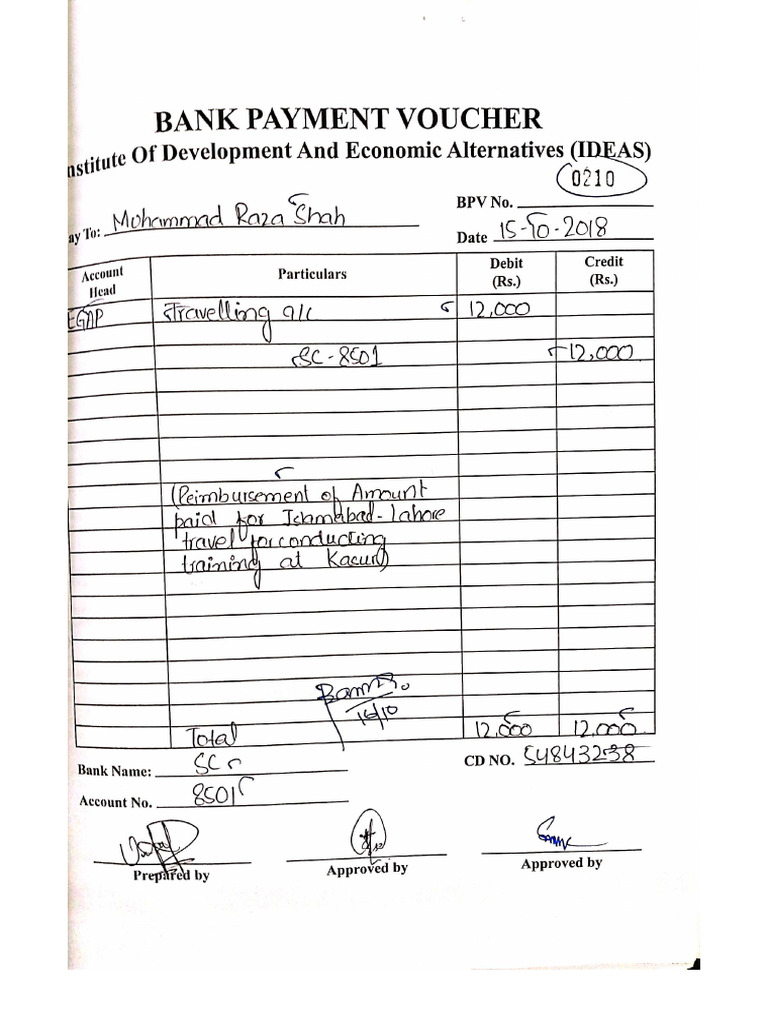 BANK PAYMENT VOUCHER
nstitute Of Development And Economic Alternatives (IDEAS)
0210
BPV No.
ay To: Mohammad Raza Shah
Date 15-10-2018
Account Head Particulars Debit (Rs.) Credit (Rs.)
EGAP Travelling a/c 12,000
SC-8501 12,000
(Reimbursement of Amount
paid for Islamabad-Lahore
travel for conducting
training at Kasur)
16/10
Total 12,000 12,000
Bank Name: SC
CD NO. 54843238
Account No. 8501
Prepared by Approved by Approved by